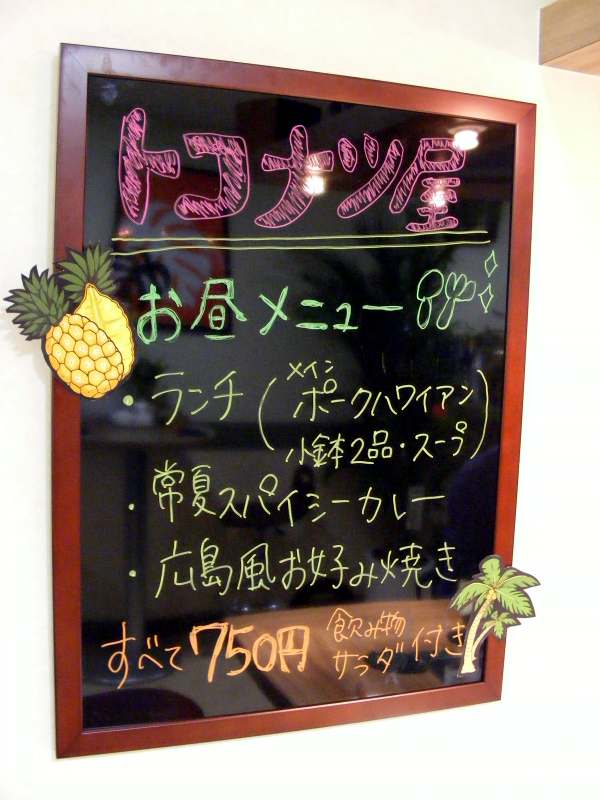 トコナツ屋
お昼メニュー
・ランチ(メイン ポークハワイアン
小鉢2品・スープ)
・常夏スパイシーカレー
・広島風お好み焼き
すべて750円 飲み物 サラダ 付き